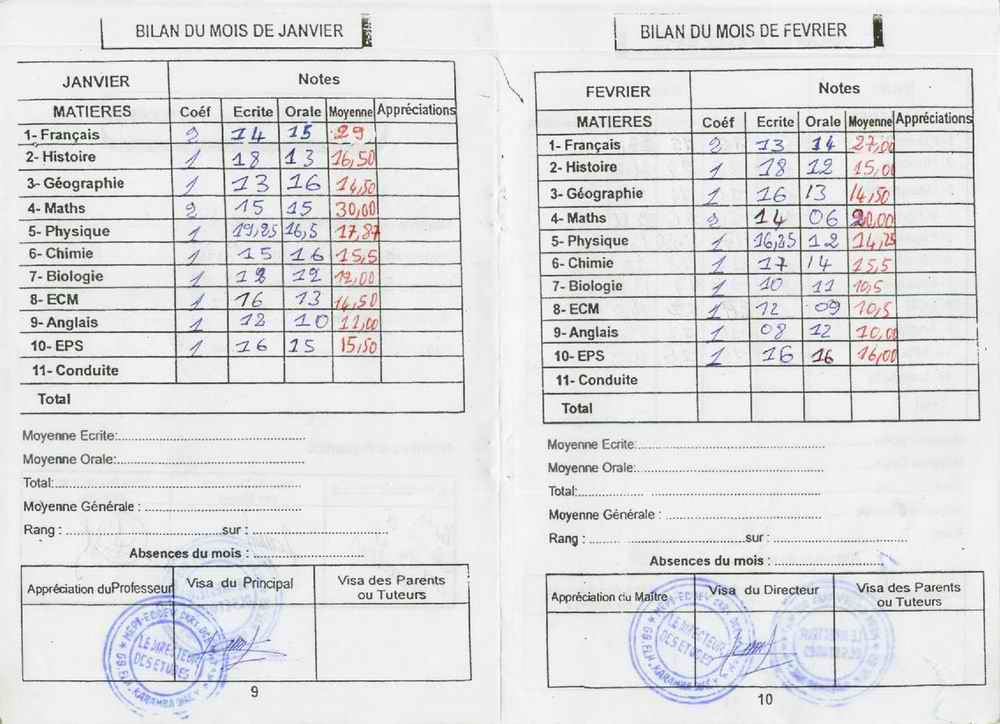 BILAN DU MOIS DE JANVIER
JANVIER Notes
MATIERES Coéf Ecrite Orale Moyenne Appréciations
1- Français 2 14 15 29
2- Histoire 1 18 13 16,50
3- Géographie 1 13 16 14,50
4- Maths 2 15 15 30,00
5- Physique 1 19,25 16,5 17,87
6- Chimie 1 15 16 15,5
7- Biologie 1 12 12 12,00
8- ECM 1 16 13 14,50
9- Anglais 1 12 10 11,00
10- EPS 1 16 15 15,50
11- Conduite
Total
Moyenne Ecrite:
Moyenne Orale:
Total:
Moyenne Générale :
Rang : sur :
Absences du mois :
Appréciation du Professeur Visa du Principal Visa des Parents ou Tuteurs
LE DIRECTEUR
DES ETUDES
9
BILAN DU MOIS DE FEVRIER
FEVRIER Notes
MATIERES Coéf Ecrite Orale Moyenne Appréciations
1- Français 2 13 14 27,00
2- Histoire 1 18 12 15,00
3- Géographie 1 16 13 14,50
4- Maths 2 14 06 20,00
5- Physique 1 16,25 12 14,25
6- Chimie 1 17 14 15,5
7- Biologie 1 10 11 10,5
8- ECM 1 12 09 10,5
9- Anglais 1 08 12 10,00
10- EPS 1 16 16 16,00
11- Conduite
Total
Moyenne Ecrite:
Moyenne Orale:
Total:
Moyenne Générale :
Rang : sur :
Absences du mois :
Appréciation du Maître Visa du Directeur Visa des Parents ou Tuteurs
LE DIRECTEUR
DES ETUDES
10